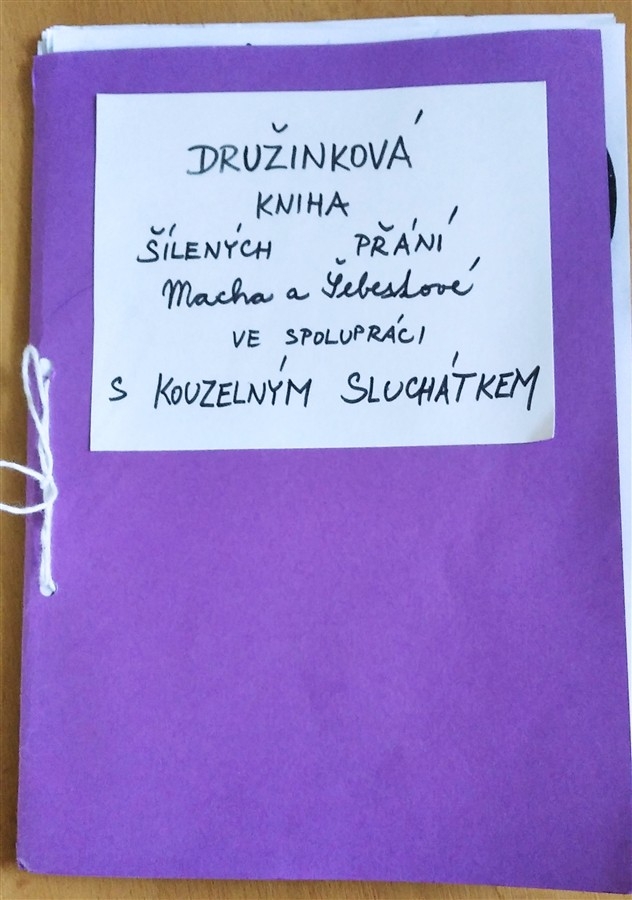 DRUŽINKOVÁ
KNIHA
ŠÍLENÝCH PŘÁNÍ
Macha a Šebestové
VE SPOLUPRÁCI
S KOUZELNÝM SLUCHÁTKEM